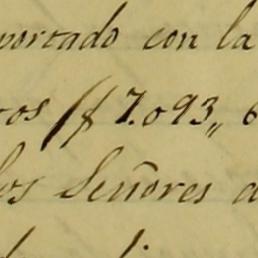 portado con la
os (f 7.093,, 6
los Señores d